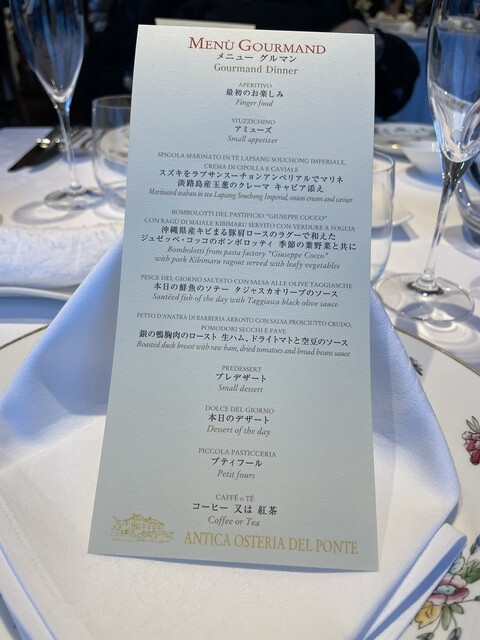 MENÙ GOURMAND
メニュー グルマン
Gourmand Dinner
APERITIVO
最初のお楽しみ
Finger food
STUZZICHINO
アミューズ
Small appetiser
SPIGOLA MARINATO IN TÈ LAPSANG SOUCHONG IMPERIALE,
CREMA DI CIPOLLA E CAVIALE
スズキをラプサンスーチョンアンペリアルでマリネ
淡路島産玉葱のクレーマ キャビア添え
Marinated seabass in tea Lapsang Souchong Imperial, onion cream and caviar
BOMBOLOTTI DEL PASTIFICIO "GIUSEPPE COCCO"
CON RAGÙ DI MAIALE KIBIMARU SERVITO CON VERDURE A FOGLIA
沖縄県産キビまる豚肩ロースのラグーで和えた
ジュゼッペ・コッコのボンボロッティ 季節の葉野菜と共に
Bombolotti from pasta factory "Giuseppe Cocco"
with pork Kibimaru ragout served with leafy vegetables
PESCE DEL GIORNO SALTATO CON SALSA ALLE OLIVE TAGGIASCHE
本日の鮮魚のソテー タジャスカオリーブのソース
Sautéed fish of the day with Taggiasca black olive sauce
PETTO D'ANATRA DI BARBERIA ARROSTO CON SALSA PROSCIUTTO CRUDO,
POMODORI SECCHI E FAVE
銀の鴨胸肉のロースト 生ハム、ドライトマトと空豆のソース
Roasted duck breast with raw ham, dried tomatoes and broad beans sauce
PREDESSERT
プレデザート
Small dessert
DOLCE DEL GIORNO
本日のデザート
Dessert of the day
PICCOLA PASTICCERIA
プティフール
Petit fours
CAFFÈ o TÈ
コーヒー 又は 紅茶
Coffee or Tea
ANTICA OSTERIA DEL PONTE